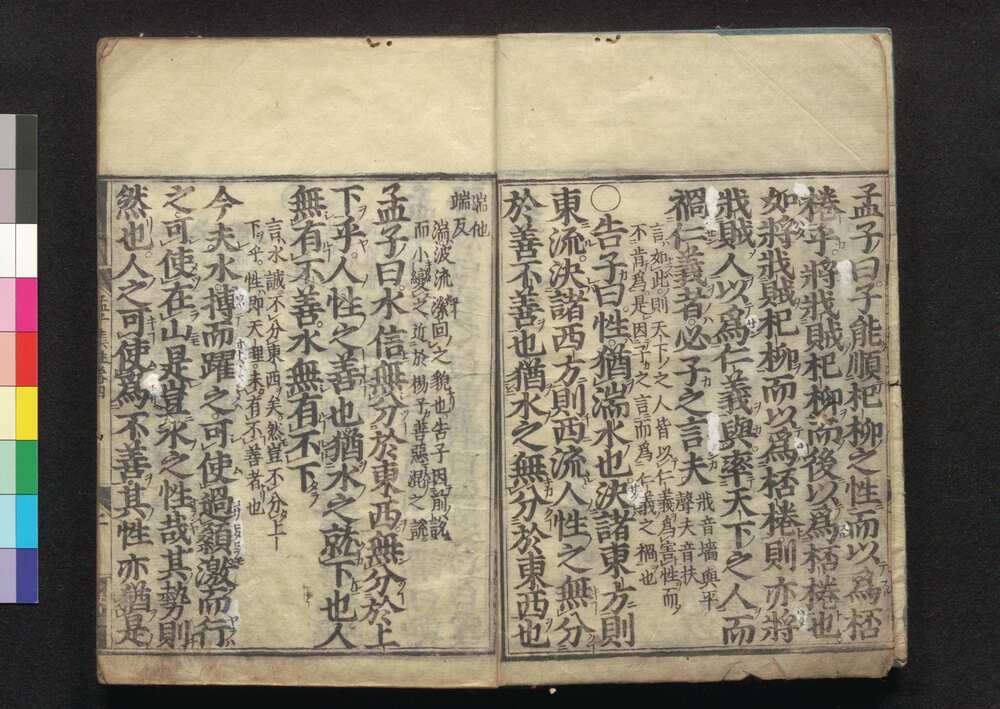 孟子曰子能順杞柳之性而以爲桮
棬乎將戕賊杞柳而後以爲桮棬也
如將戕賊杞柳而以爲桮棬則亦將
戕賊人以爲仁義與率天下之人而
禍仁義者必子之言夫
戕音墻與平
聲夫音扶
言如此則天下之人皆以仁義爲害性而
不肯爲是因子之言而爲仁義之禍也
○告子曰性猶湍水也決諸東方則
東流決諸西方則西流人性之無分
於善不善也猶水之無分於東西也
湍他
端反
湍波流瀠回之貌也告子因前說
而小變之近於楊子善惡混之說
孟子曰水信無分於東西無分於上
下乎人性之善也猶水之就下也人
無有不善水無有不下
言水誠不分東西矣然豈不分上
下乎性即天理未有不善者也
今夫水搏而躍之可使過顙激而行
之可使在山是豈水之性哉其勢則
然也人之可使爲不善其性亦猶是